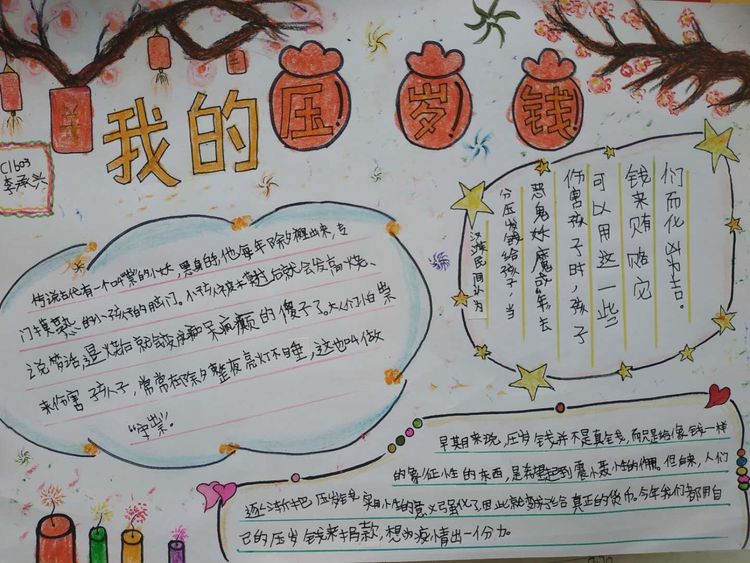 我的压岁钱
C1603
李承兴
传说古代有一个叫"祟"的小妖,黑身白手,他每年除夕夜里出来,专
门摸熟睡的小孩的脑门。小孩被摸过后就会发高烧、
说梦话,退烧后就会变痴呆疯癫的傻子了。大人们怕祟
来伤害孩子,常常在除夕整夜亮灯不睡,这也叫做
"守祟"。
汉族民间认为
分压岁钱给孩子,当
恶鬼妖魔或"年"去
伤害孩子时,孩子
可以用这一些
钱来贿赂它
们而化凶为吉。
早期来说,压岁钱并不是真钱,而只是给像钱一样
的象征性的东西,是希望起到震慑性的作用。但后来,人们
逐渐把压岁钱实用性的意义强化了,因此就演变给真正的货币。今年我们都用自
己的压岁钱来捐款,想为疫情出一份力。